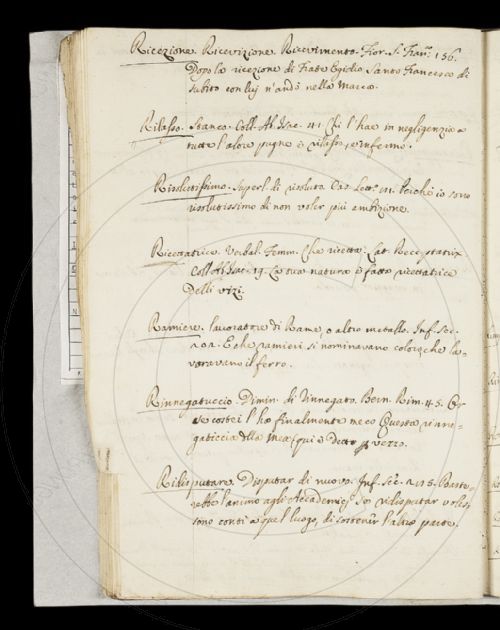 Ricezione. Ricevizione. Ricevimento. Fior. S. Fran. 156.
Dopo la ricezione di Frate Egidio Santo Francesco di
subito con lui n'andò nella Marca.
Rilasso. Stanco. Coll. Ab. Isac. 41. Chi l'hae in negligenzia
tutte l'altre pugne è rilasso, e infermo.
Risolutissimo. Superl. di risoluto. Cas. Lett. 111. Perchè io sono
risolutissimo di non voler più ambizione.
Ricettatrice. Verbal. Femm. Che ricetta. Lat. Receptatrix
Coll. Ab. Isac. 19. La tua natura è fatta ricettatrice
delli vizi.
Ramiere. lavoratore di Rame, o altro metallo. Inf. Sec.
202. E che ramieri si nominavano coloro che la-
voravano il ferro.
Rinnegatuccio. Dimin. di Rinnegato. Bern. Rim. 45.
se costei l'ho finalmente meco Questa rinne-
gaticcia della mea, qui è detto p vezzo.
Ridisputare. Disputar di nuovo. Inf. Sec. 215. Baste-
rebbe l'animo agli Accademici, se ridisputar voles-
sono conti a quel luogo, di sostener l'altra parte.